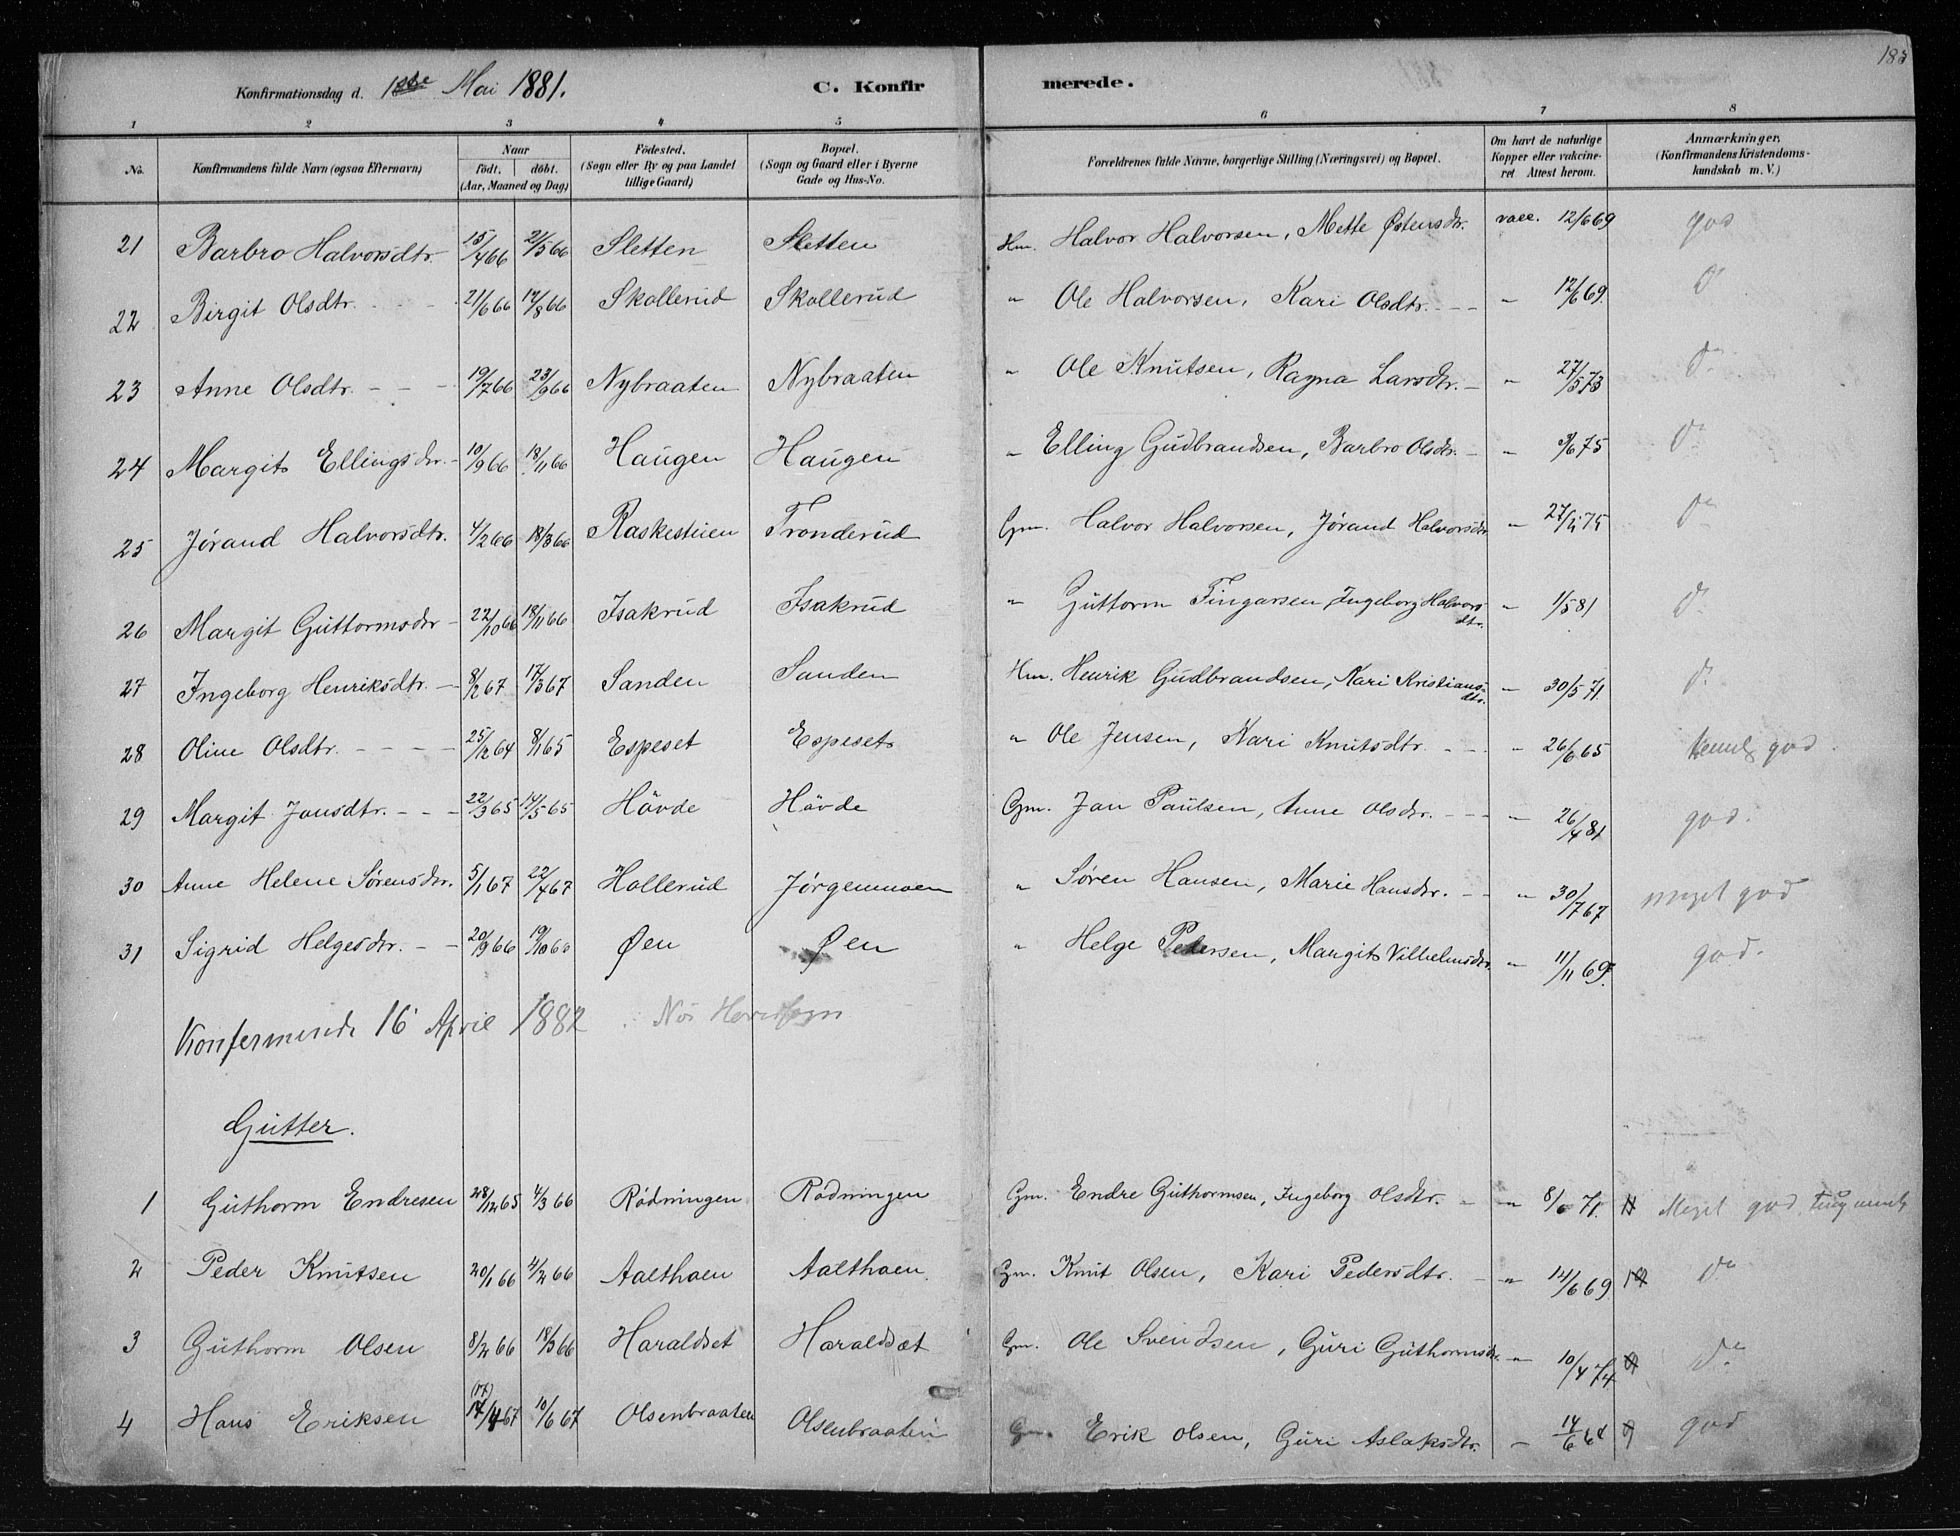 183
Konfirmationsdag d. 1ste Mai 1881. C. Konfirmerede.
1 2 3 4 5 6 7 8
No. Konfirmandens fulde Navn (ogsaa Efternavn) Naar født. døbt. (Aar, Maaned og Dag) Fødested. (Sogn eller By og paa Landet tillige Gaard) Bopæl. (Sogn og Gaard eller i Byerne Gade og Hus-No. Forældrenes fulde Navne, borgerlige Stilling (Næringsvei) og Bopæl. Om havt de naturlige Kopper eller vakcineret Attest herom. Anmærkninger. (Konfirmandens Kristendomskundskab m. V.)
21 Barbro Halvorsdtr. 15/4 66 21/5 66 Sletten Sletten Hm. Halvor Halvorsen, Mette Østensdtr. vacc. 12/6 69 god
22 Birgit Olsdtr. - - - 21/6 66 12/8 66 Skollerud Skollerud " Ole Halvorsen, Kari Olsdtr. - - - " 12/6 69. Do
23 Anne Olsdtr. - - - 19/7 66 23/9 66 Nybraaten Nybraaten " Ole Knutsen, Ragna Larsdtr. - " 27/5 73 Do
24 Margit Ellingsdtr. - 10/9 66 18/11 66 Haugen Haugen " Elling Gudbrandsen, Barbro Olsdtr. - " 3/6 75 Do
25 Jørand Halvorsdtr. 4/2 66 18/3 66 Raskestuen Tronderud Gm. Halvor Halvorsen, Jørand Halvorsdtr " 27/5 75 Do
26 Margit Guttormsdtr - 22/10 66 18/11 66 Isakrud Isakrud " Guttorm Fingarsen, Ingeborg Halvorsdtr. " 1/5 81 Do
27 Ingeborg Henriksdtr. - 8/2 67 17/3 67 Sanden Sanden Hm. Henrik Gudbrandsen, Kari Kristiansdtr. " 30/5 71. Do
28 Oline Olsdtr. - - - - 25/12 64 8/1 65 Espeset Espeset " Ole Jensen, Kari Knutsdtr. - - - " 26/6 65 temml god.
29 Margit Jansdtr. - - - 22/3 65 14/5 65 Hövde Hövde Gm. Jan Paulsen, Anne Olsdtr. - - - " 26/4 81 god.
30 Anne Helene Sørensdtr. 5/1 67 22/4 67 Hollerud Jørgenmoen " Søren Hansen, Marie Hansdtr. - - " 30/7 67 meget god
31 Sigrid Helgesdtr. - - 20/9 66 19/10 66 Øen Øen " Helge Pedersen, Margit Vilhelmsdtr. " 11/11 69. god.
Konfermerede 16 April 1882.
Gutter.
1 Guthorm Endresen 28/12 65 4/3 66 Rödningen Rödningen Gm. Endre Guthormsen, Ingeborg Olsdtr. - " 8/6 71. Meget god
2 Peder Knutsen 20/1 66 4/2 66 Aalthoen Aalthoen. Gm. Knut Olsen, Kari Pedersdtr. - " 12/6 69 Do
3 Guthorm Olsen 8/2 66 18/3 66 Haraldset Haraldsæt Gm. Ole Svendsen, Guri Guthormsdtr. " 10/4 74 Do
4 Hans Eriksen (17) 17/4 67 10/6 67 Olsenbraaten Olsenbraaten Gm. Erik Olsen, Guri Aslaksdtr. - 14/6 64 god